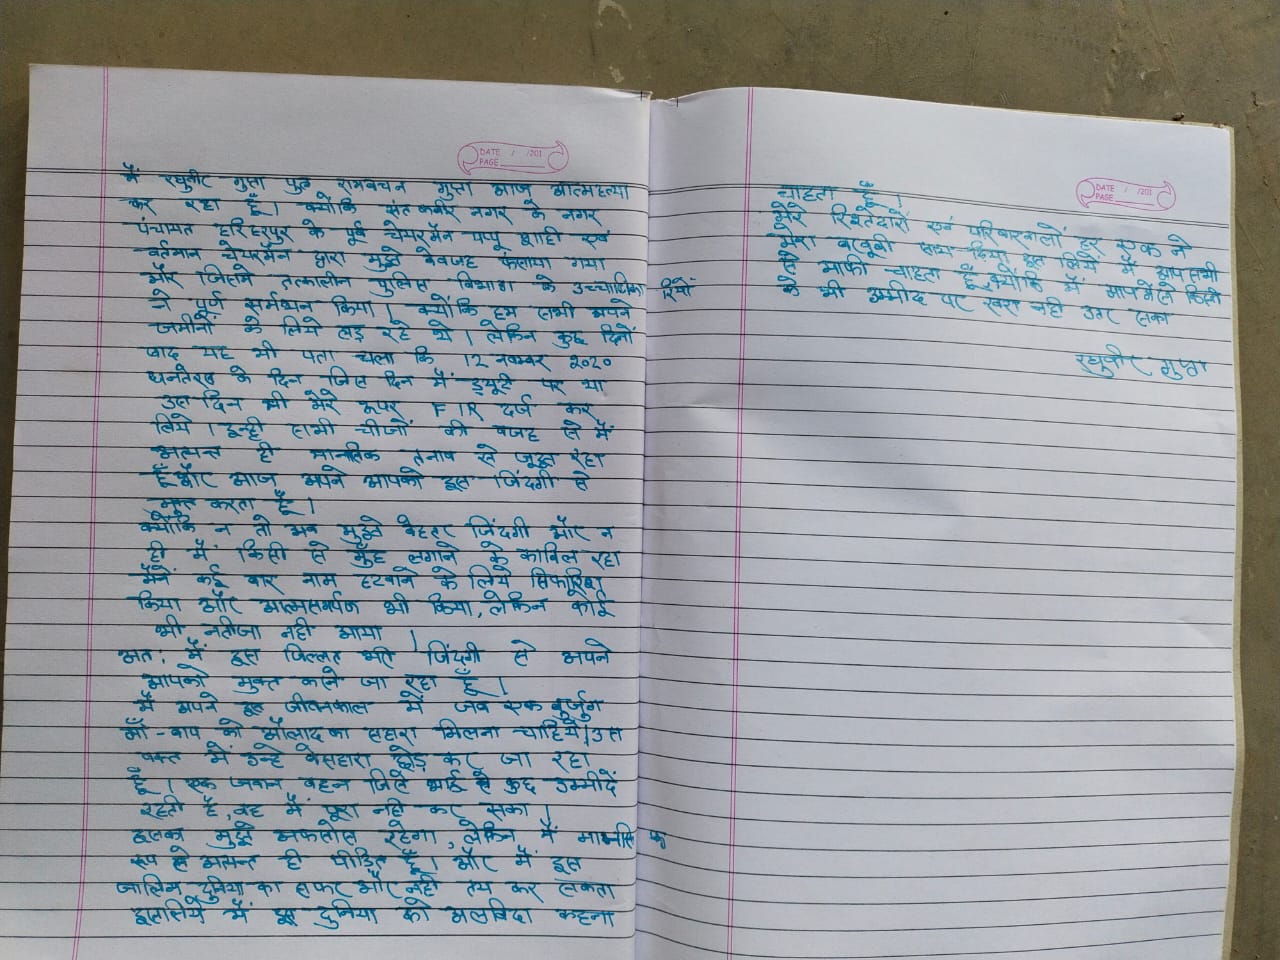 DATE / /201
PAGE
मैं रघुवीर गुप्ता पुत्र रामबचन गुप्ता आज आत्महत्या
कर रहा हूँ। क्योंकि संत कबीर नगर के नगर
पंचायत हरिहरपुर के पूर्व चेयरमैन पप्पू शाही एवं
वर्तमान चेयरमैन द्वारा मुझे बेवजह फंसाया गया
और जिसमे तत्कालीन पुलिस विभाग के उच्चाधिकारियों
ने पूर्ण सर्मथन किया। क्योंकि हम सभी अपने
जमीनों के लिये लड़ रहे थे। लेकिन कुछ दिनों
बाद यह भी पता चला कि 12 नवम्बर २०२०
धनतेरस के दिन जिस दिन मैं ड्यूटी पर था
उस दिन भी मेरे ऊपर FIR दर्ज कर
लिये। इन्ही सभी चीजों की वजह से मैं
अत्यन्त ही मानसिक तनाव से जूझ रहा
हूँ और आज अपने आपको इस जिंदगी से
मुक्त करता हूँ।
क्योंकि न तो अब मुझमे बेहतर जिंदगी और न
ही मैं किसी से मुँह लगाने के काबिल रहा
मैनें कई बार नाम हटवाने के लिये सिफारिश
किया और आत्मसमर्पण भी किया, लेकिन कोई
भी नतीजा नही आया।
अतः मैं इस जिल्लत भरी जिंदगी से अपने
आपको मुक्त करने जा रहा हूँ।
मैं अपने इस जीवनकाल में जब एक बुर्जुग
माँ-बाप को औलाद का सहारा मिलना चाहिये। उस
वक्त में उन्हे बेसहारा छोड़ कर जा रहा
हूँ। एक जवान बहन जिसे भाई से कुछ उम्मीदें
रहती हैं, वह मैं पूरा नही कर सका।
इसका मुझे अफसोस रहेगा, लेकिन मैं मानसिक
रूप से अत्यन्त ही पीड़ित हूँ। और मैं इस
जालिम दुनिया का सफर और नही तय कर सकता
इसलिये मैं इस दुनिया को अलविदा कहना
DATE / /201
PAGE
चाहता हूँ।
मेरे रिश्तेदारों एवं परिवारवालों हर एक ने
मेरा बखूबी साथ दिया इस लिये मैं आप सभी
से माफी चाहता हूँ, क्योंकि मैं आपमेंसे किसी
के भी उम्मीद पर खरा नही उतर सका
रघुवीर गुप्ता